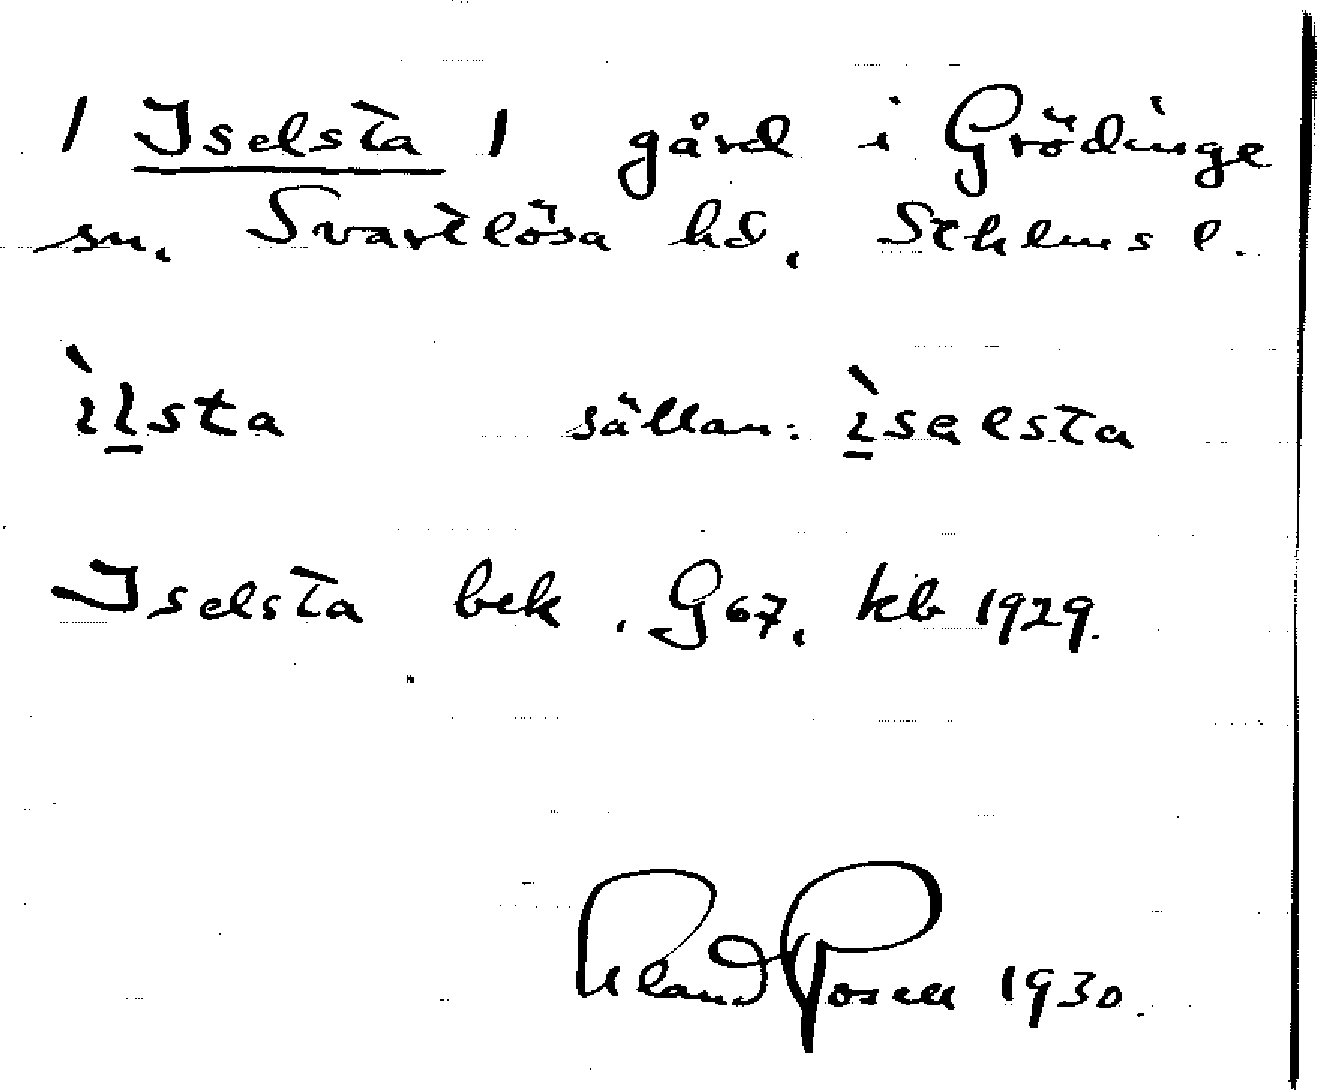 / Iselsta / gård i Grödinge
sn. Svartlösa hd. Sthlms l.
ı̀lsta sällan: ı̀sɐlsta
Iselsta bek. G67. kb 1929.
1930.